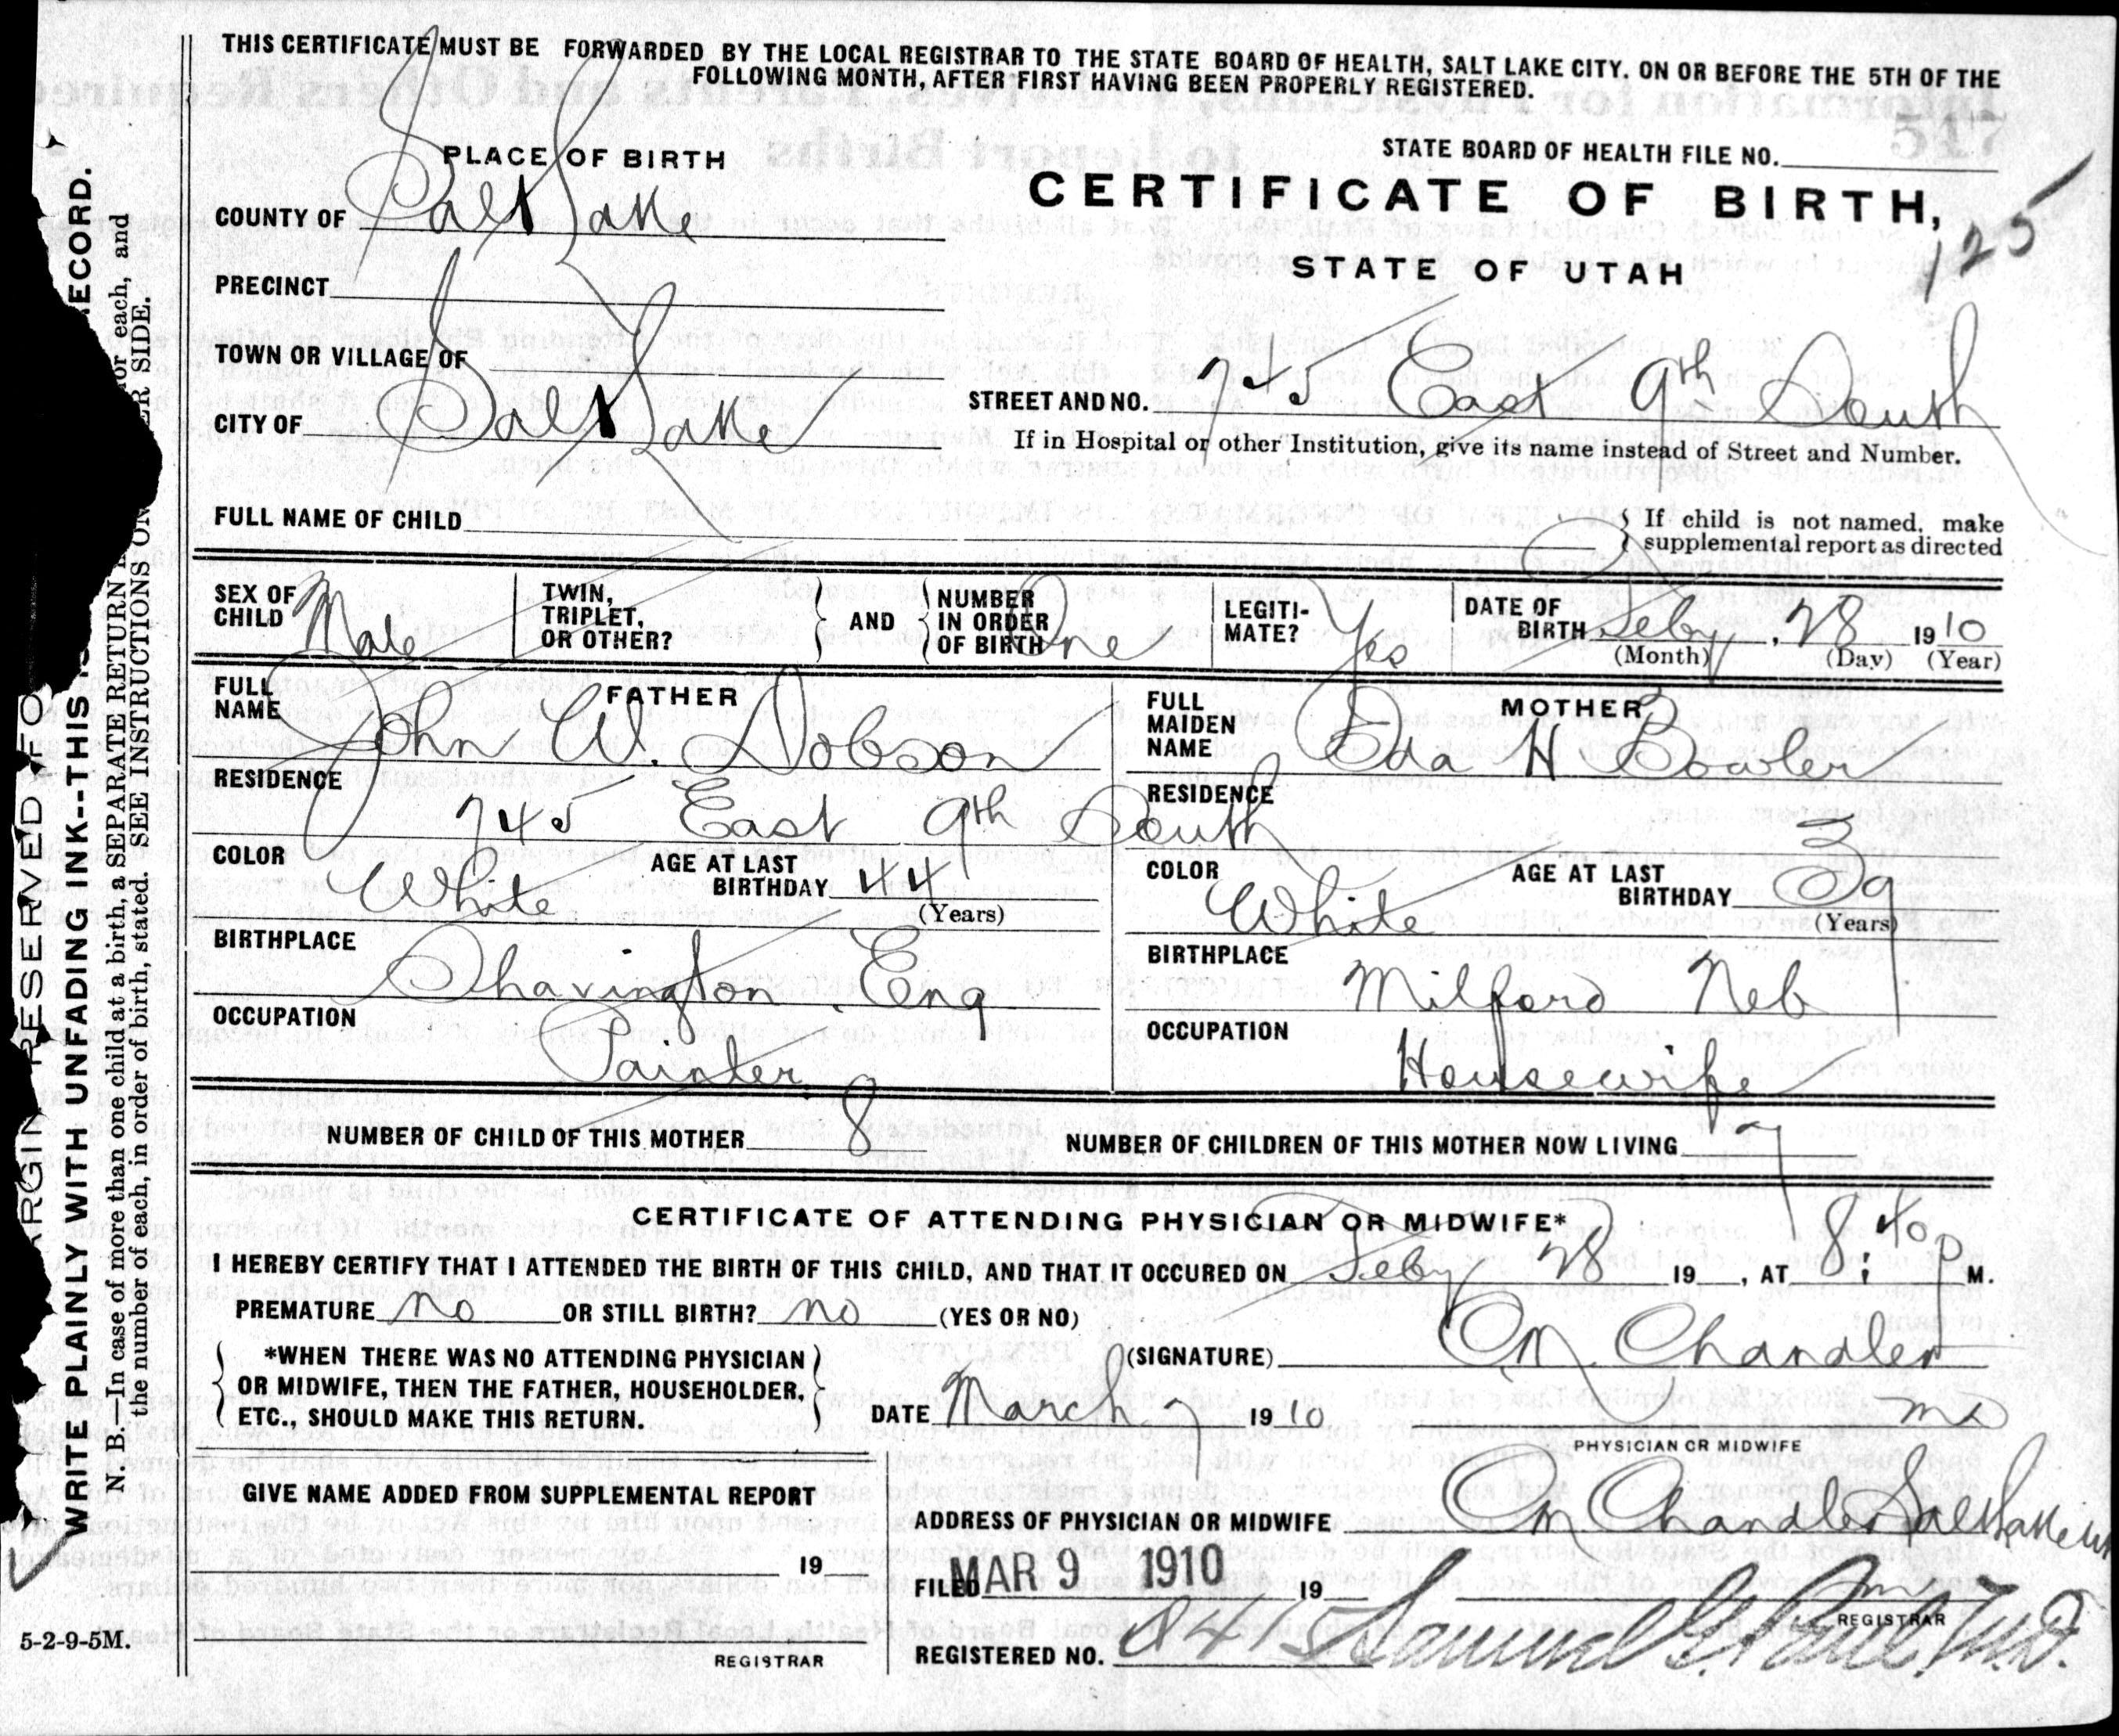 THIS CERTIFICATE MUST BE FORWARDED BY THE LOCAL REGISTRAR TO THE STATE BOARD OF HEALTH, SALT LAKE CITY. ON OR BEFORE THE 5TH OF THE
FOLLOWING MONTH, AFTER FIRST HAVING BEEN PROPERLY REGISTERED.
PLACE OF BIRTH
STATE BOARD OF HEALTH FILE NO.
COUNTY OF Salt Lake
CERTIFICATE OF BIRTH,
125
PRECINCT
STATE OF UTAH
TOWN OR VILLAGE OF
STREET AND NO. 745 East 9th South
CITY OF Salt Lake
If in Hospital or other Institution, give its name instead of Street and Number.
FULL NAME OF CHILD
If child is not named, make
supplemental report as directed
SEX OF CHILD Male
TWIN, TRIPLET, OR OTHER? AND NUMBER IN ORDER OF BIRTH One
LEGITI-MATE? Yes
DATE OF BIRTH Feby, 28 1910
(Month) (Day) (Year)
FATHER
FULL NAME John W. Dobson
MOTHER
FULL MAIDEN NAME Eda H Bowler
RESIDENCE 745 East 9th South
RESIDENCE
COLOR White AGE AT LAST BIRTHDAY 44
(Years)
COLOR White AGE AT LAST BIRTHDAY 39
(Years)
BIRTHPLACE Shavington. Eng
BIRTHPLACE Milford Neb
OCCUPATION Painter
OCCUPATION Housewife
NUMBER OF CHILD OF THIS MOTHER 8
NUMBER OF CHILDREN OF THIS MOTHER NOW LIVING 7
CERTIFICATE OF ATTENDING PHYSICIAN OR MIDWIFE*
I HEREBY CERTIFY THAT I ATTENDED THE BIRTH OF THIS CHILD, AND THAT IT OCCURED ON Feby 28 19 , AT 8:40 p M.
PREMATURE no OR STILL BIRTH? no (YES OR NO)
*WHEN THERE WAS NO ATTENDING PHYSICIAN
OR MIDWIFE, THEN THE FATHER, HOUSEHOLDER,
ETC., SHOULD MAKE THIS RETURN.
(SIGNATURE) Chandler
MD
DATE March 7 1910
PHYSICIAN OR MIDWIFE
GIVE NAME ADDED FROM SUPPLEMENTAL REPORT
ADDRESS OF PHYSICIAN OR MIDWIFE Chandler Salt Lake
19
FILED MAR 9 1910 19
REGISTRAR
REGISTERED NO. 8415 Samuel G. Paul M.D.
REGISTRAR
5-2-9-5M.
ARGIN RESERVED FO
WRITE PLAINLY WITH UNFADING INK--THIS IS ECORD.
N. B.—In case of more than one child at a birth, a SEPARATE RETURN for each, and
the number of each, in order of birth, stated. SEE INSTRUCTIONS ON ER SIDE.